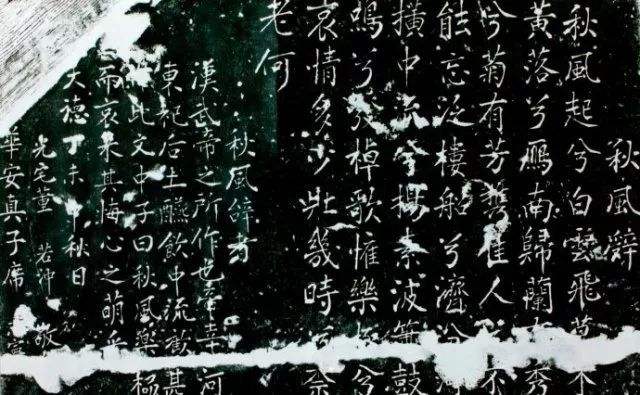 秋風辭
秋風起兮白雲飛草木
黃落兮鴈南歸蘭有秀
兮菊有芳攜佳人兮不
能忘泛樓船兮濟汾河
橫中流兮揚素波簫鼓
鳴兮發棹歌懽樂極兮
哀情多少壯幾時兮奈
老何
秋風辭者
漢武帝之所作也帝幸河
東祀后土讌飲中流歡甚
此文中子曰秋風樂極
而哀來其悔心之萌乎
大德丁未中秋日
光宅董若沖敬
華安真子席